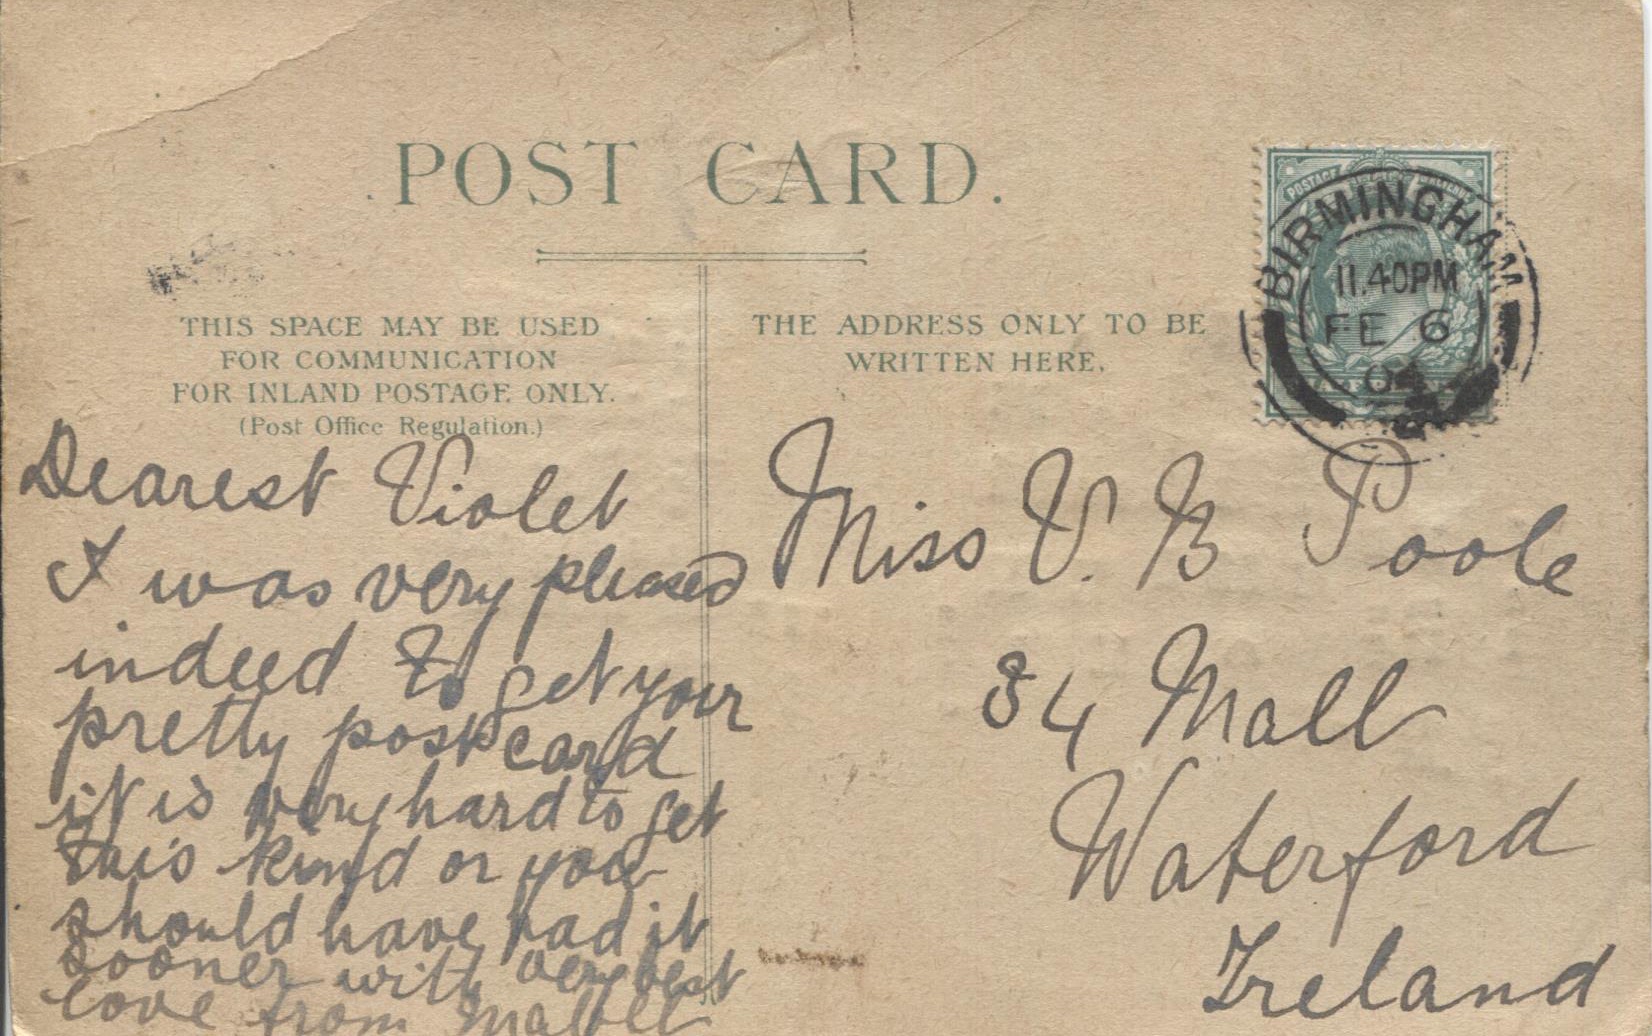 POST CARD.
THIS SPACE MAY BE USED
FOR COMMUNICATION
FOR INLAND POSTAGE ONLY.
(Post Office Regulation.)
Dearest Violet
I was very pleased
indeed to get your
pretty post card
it is very hard to get
this kind or you
should have had it
sooner with very best
love from Mabel
THE ADDRESS ONLY TO BE
WRITTEN HERE.
POSTAGE
BIRMINGHAM
11.40PM
FE 6
Miss V. B Poole
34 Mall
Waterford
Ireland